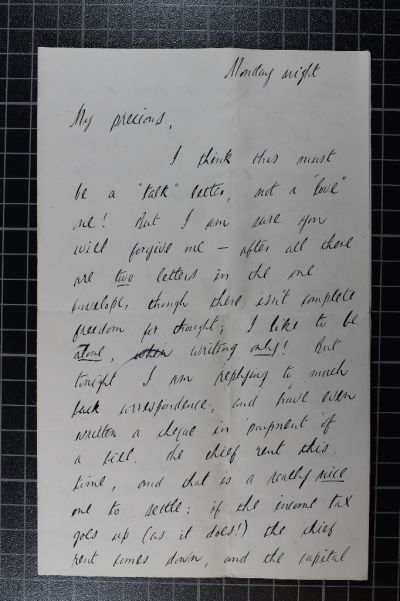 Monday night
My precious,
I think this must
be a "talk" letter, not a "love"
one! But I am sure you
will forgive me — after all there
are two letters in the one
envelope, though there isn't complete
freedom for thought; I like to be
alone, when writing only! But
tonight I am replying to much
back correspondence, and have even
written a cheque in payment of
a bill. The chief rent this
time, and that is a really nice
one to settle; if the income tax
goes up (as it does!) the chief
rent comes down, and the capital